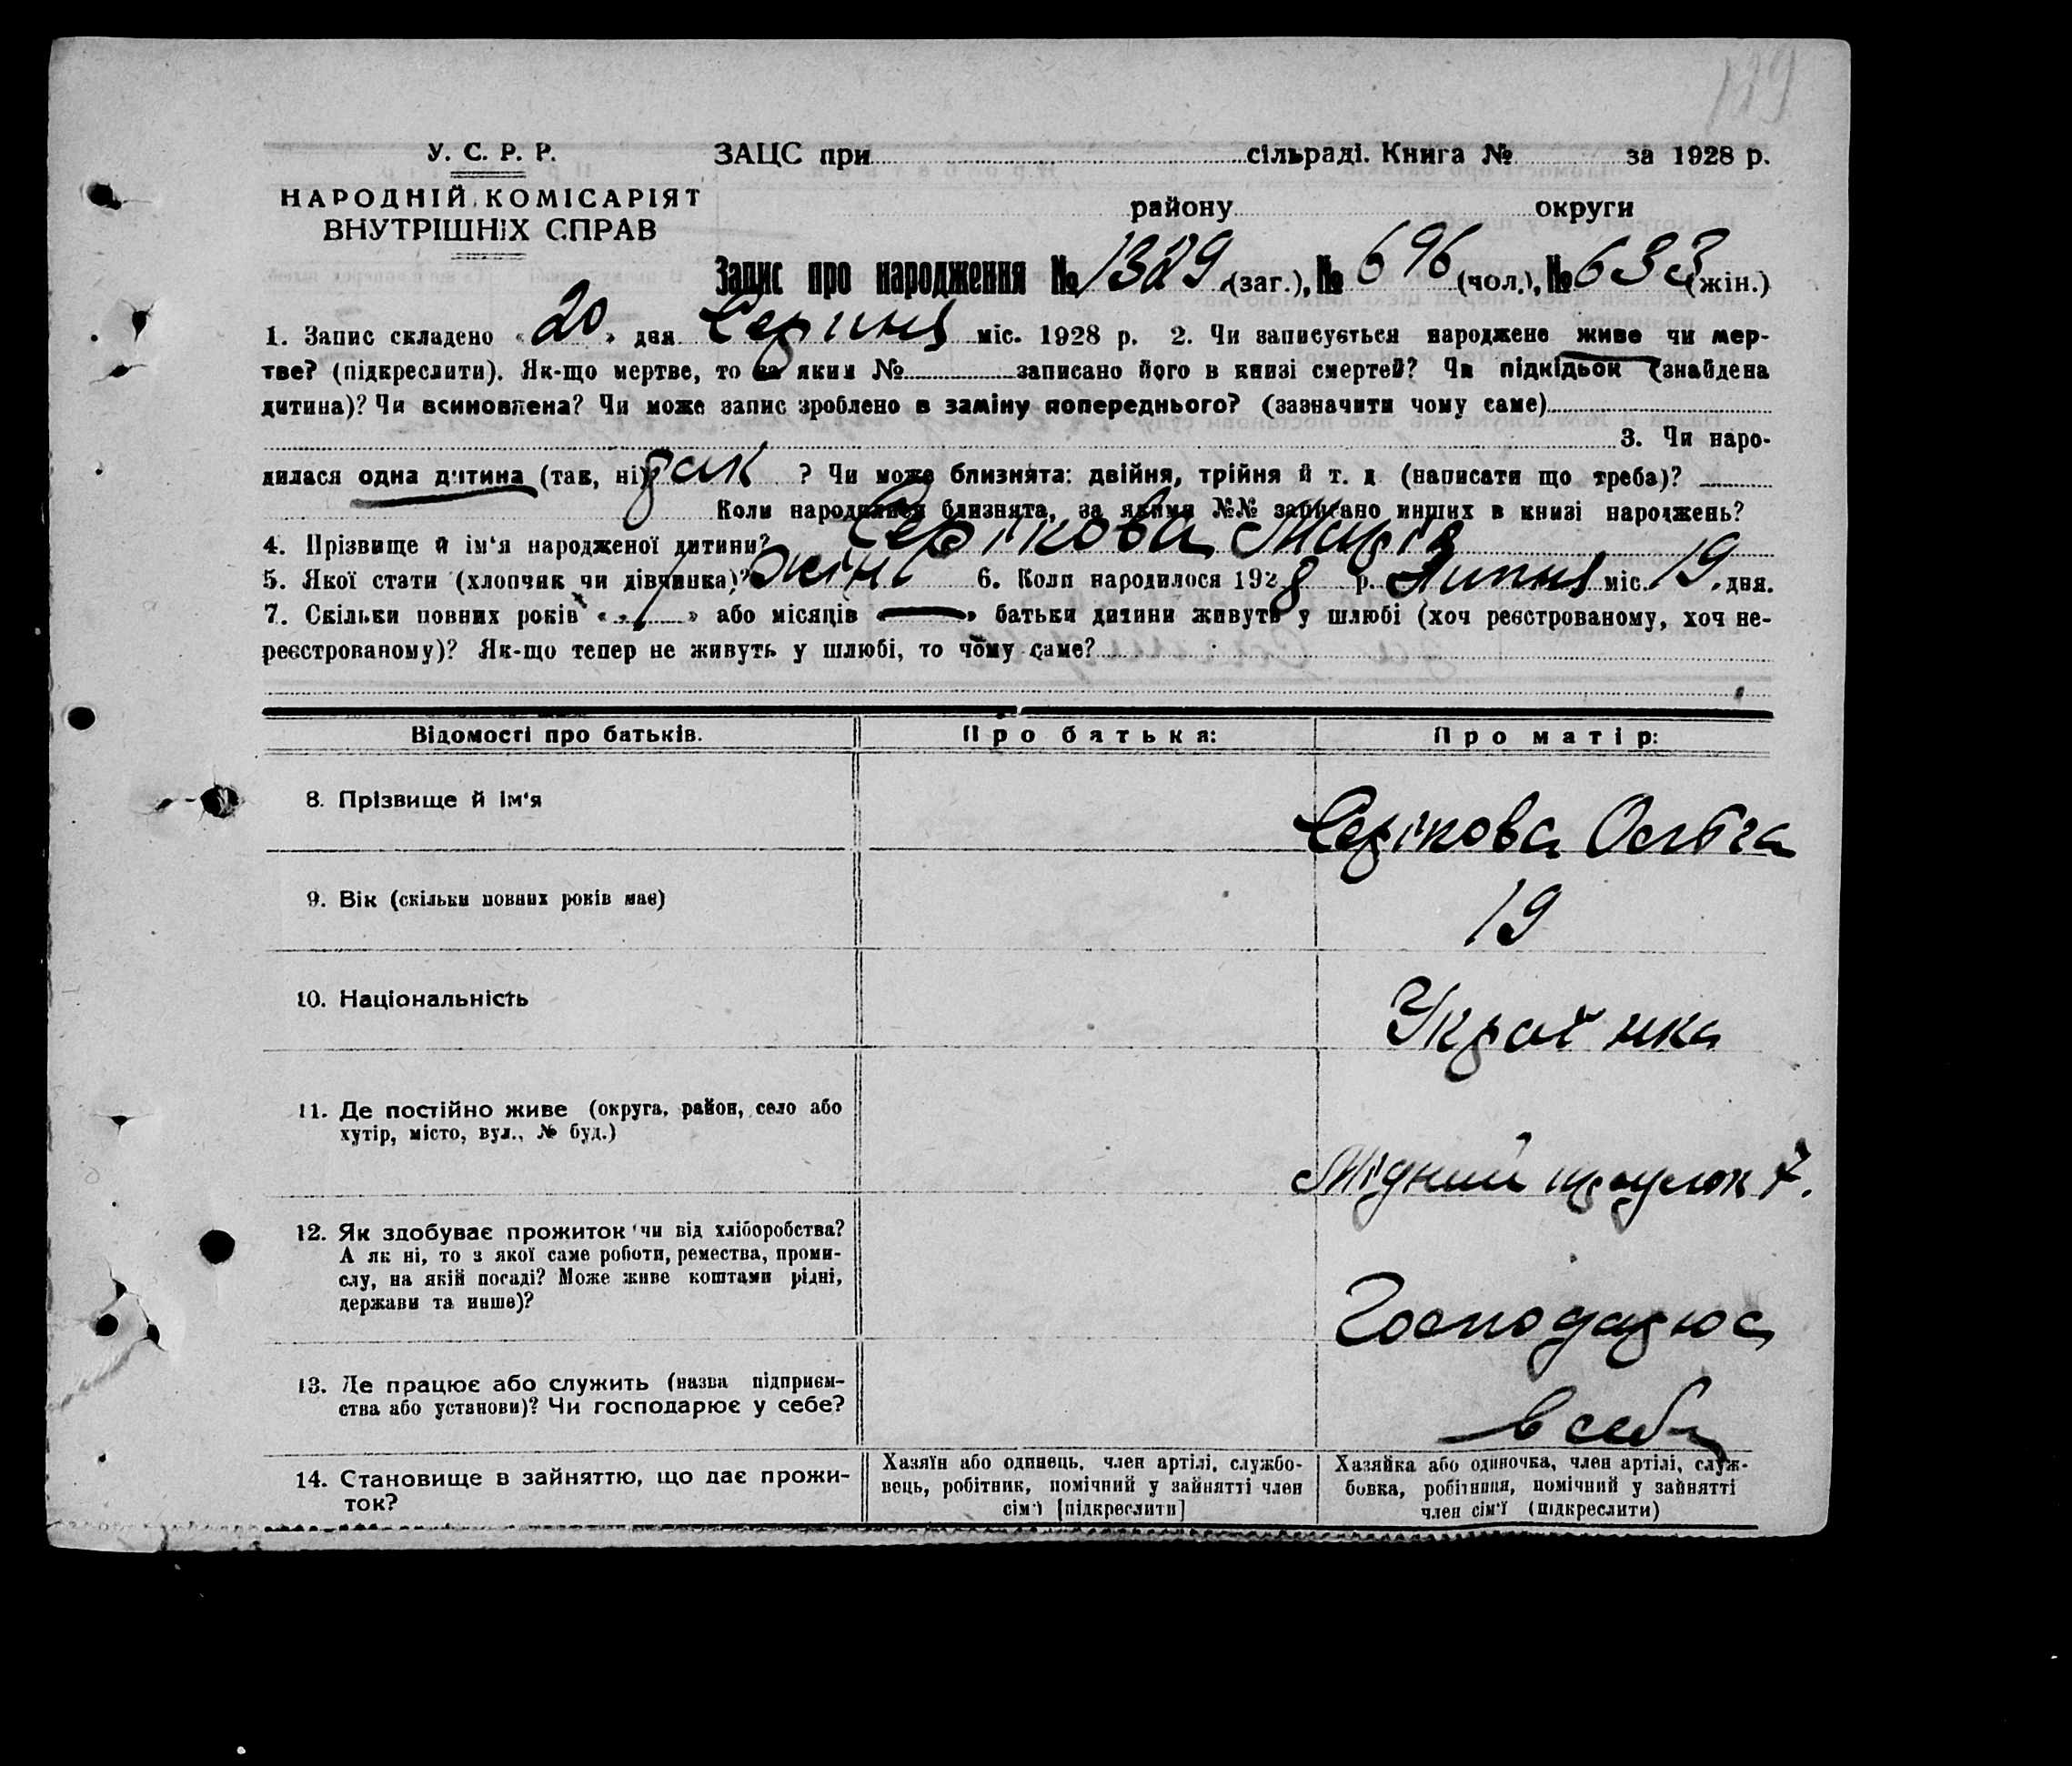 139
У. С. Р. Р.
НАРОДНІЙ КОМІСАРІЯТ
ВНУТРІШНІХ СПРАВ
ЗАЦС при сільраді. Книга № за 1928 р.
району округи
Запис про народження № 1329 (заг.), № 696 (чол.), № 633 (жін.)
1. Запис складено « 20 » дня Серпня міс. 1928 р. 2. Чи записується народжене живе чи мер-
тве? (підкреслити). Як-що мертве, то за яким № записано його в книзі смертей? Чи підкідьок (знайдена
дитина)? Чи всиновлена? Чи може запис зроблено в заміну попереднього? (зазначити чому саме)
3. Чи наро-
дилася одна дитина (так, ні) так ? Чи може близнята: двійня, трійня й т. д. (написати що треба)?
Коли народилися близнята, за якими №№ записано инших в книзі народжень?
4. Прізвище й ім'я народженої дитини? Серікова Марія
5. Якої стати (хлопчик чи дівчинка)? жін 6. Коли народилося 1928 р. Липня міс. 19 дня.
7. Скільки повних років « 1 » або місяців « — » батьки дитини живуть у шлюбі (хоч реєстрованому, хоч не-
реєстрованому)? Як-що тепер не живуть у шлюбі, то чому саме?
Відомості про батьків. Про батька: Про матір:
8. Прізвище й ім'я Серікова
9. Вік (скільки повних років має) 19
10. Національність Українка
11. Де постійно живе (округа, район, село або
хутір, місто, вул., № буд.)
Мідний провулок 7.
12. Як здобуває прожиток чи від хліборобства?
А як ні, то з якої саме роботи, ремества, проми-
слу, на якій посаді? Може живе коштами рідні,
держави та инше)?
Господарює
13. Де працює або служить (назва підприєм-
ства або установи)? Чи господарює у себе?
в себе
14. Становище в зайняттю, що дає прожи-
ток?
Хазяїн або одинець, член артілі, службо-
вець, робітник, помічний у зайнятті член
сім'ї [підкреслити]
Хазяйка або одиночка, член артілі, служ-
бовка, робітниця, помічний у зайнятті
член сім'ї (підкреслити)